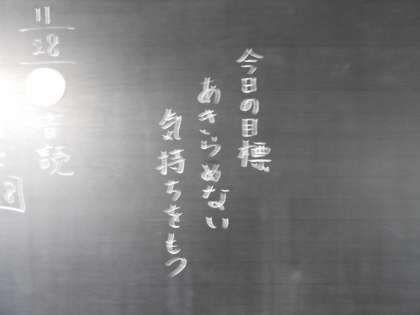 今日の目標
あきらめない
気持ちをもつ
11
28
音読